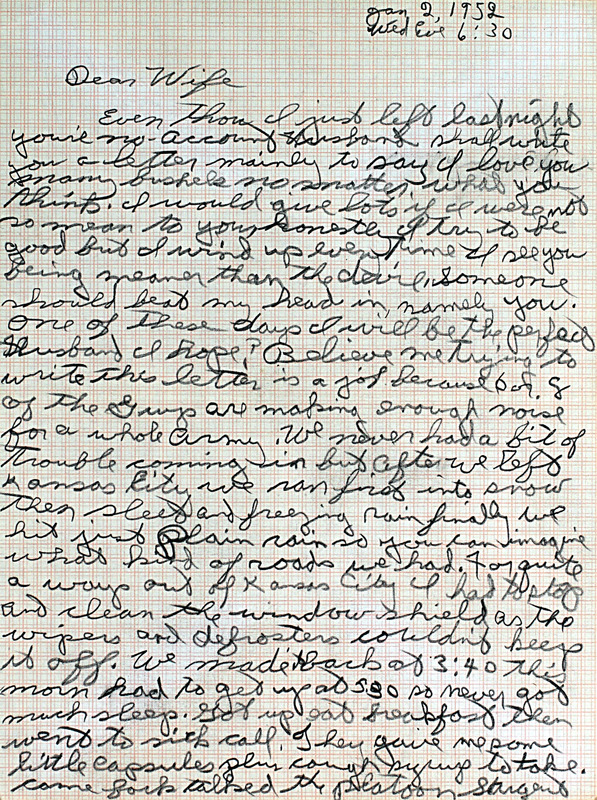 Jan 2, 1952
Wed Eve 6:30
Dear Wife
Even thou I just left last night
you're no-account Husband shall write
you a letter mainly to say I love you
many bushels no matter what you
think. I would give lots if I were not
so mean to you, honestly I try to be
good but I wind up every time I see you
being meaner than the devil, someone
should beat my head in, namely you.
One of these days I will be the perfect
Husband I hope? Believe me trying to
write this letter is a job because 6 or 8
of the Guys are making enough noise
for a whole army. We never had a bit of
trouble coming in but after we left
Kansas City we ran first into snow
then sleet and freezing rain finally we
hit just plain rain so you can imagine
what kind of roads we had. For quite
a ways out of Kansas City I had to stop
and clean the window shield as the
wipers and defrosters couldn't keep
it off. We made it back at 3:40 this
morn had to get up at 530 so never got
much sleep. Got up eat breakfast then
went to sick call. They gave me some
little capsules plus cough syrup to take.
came back talked the platoon Sargent